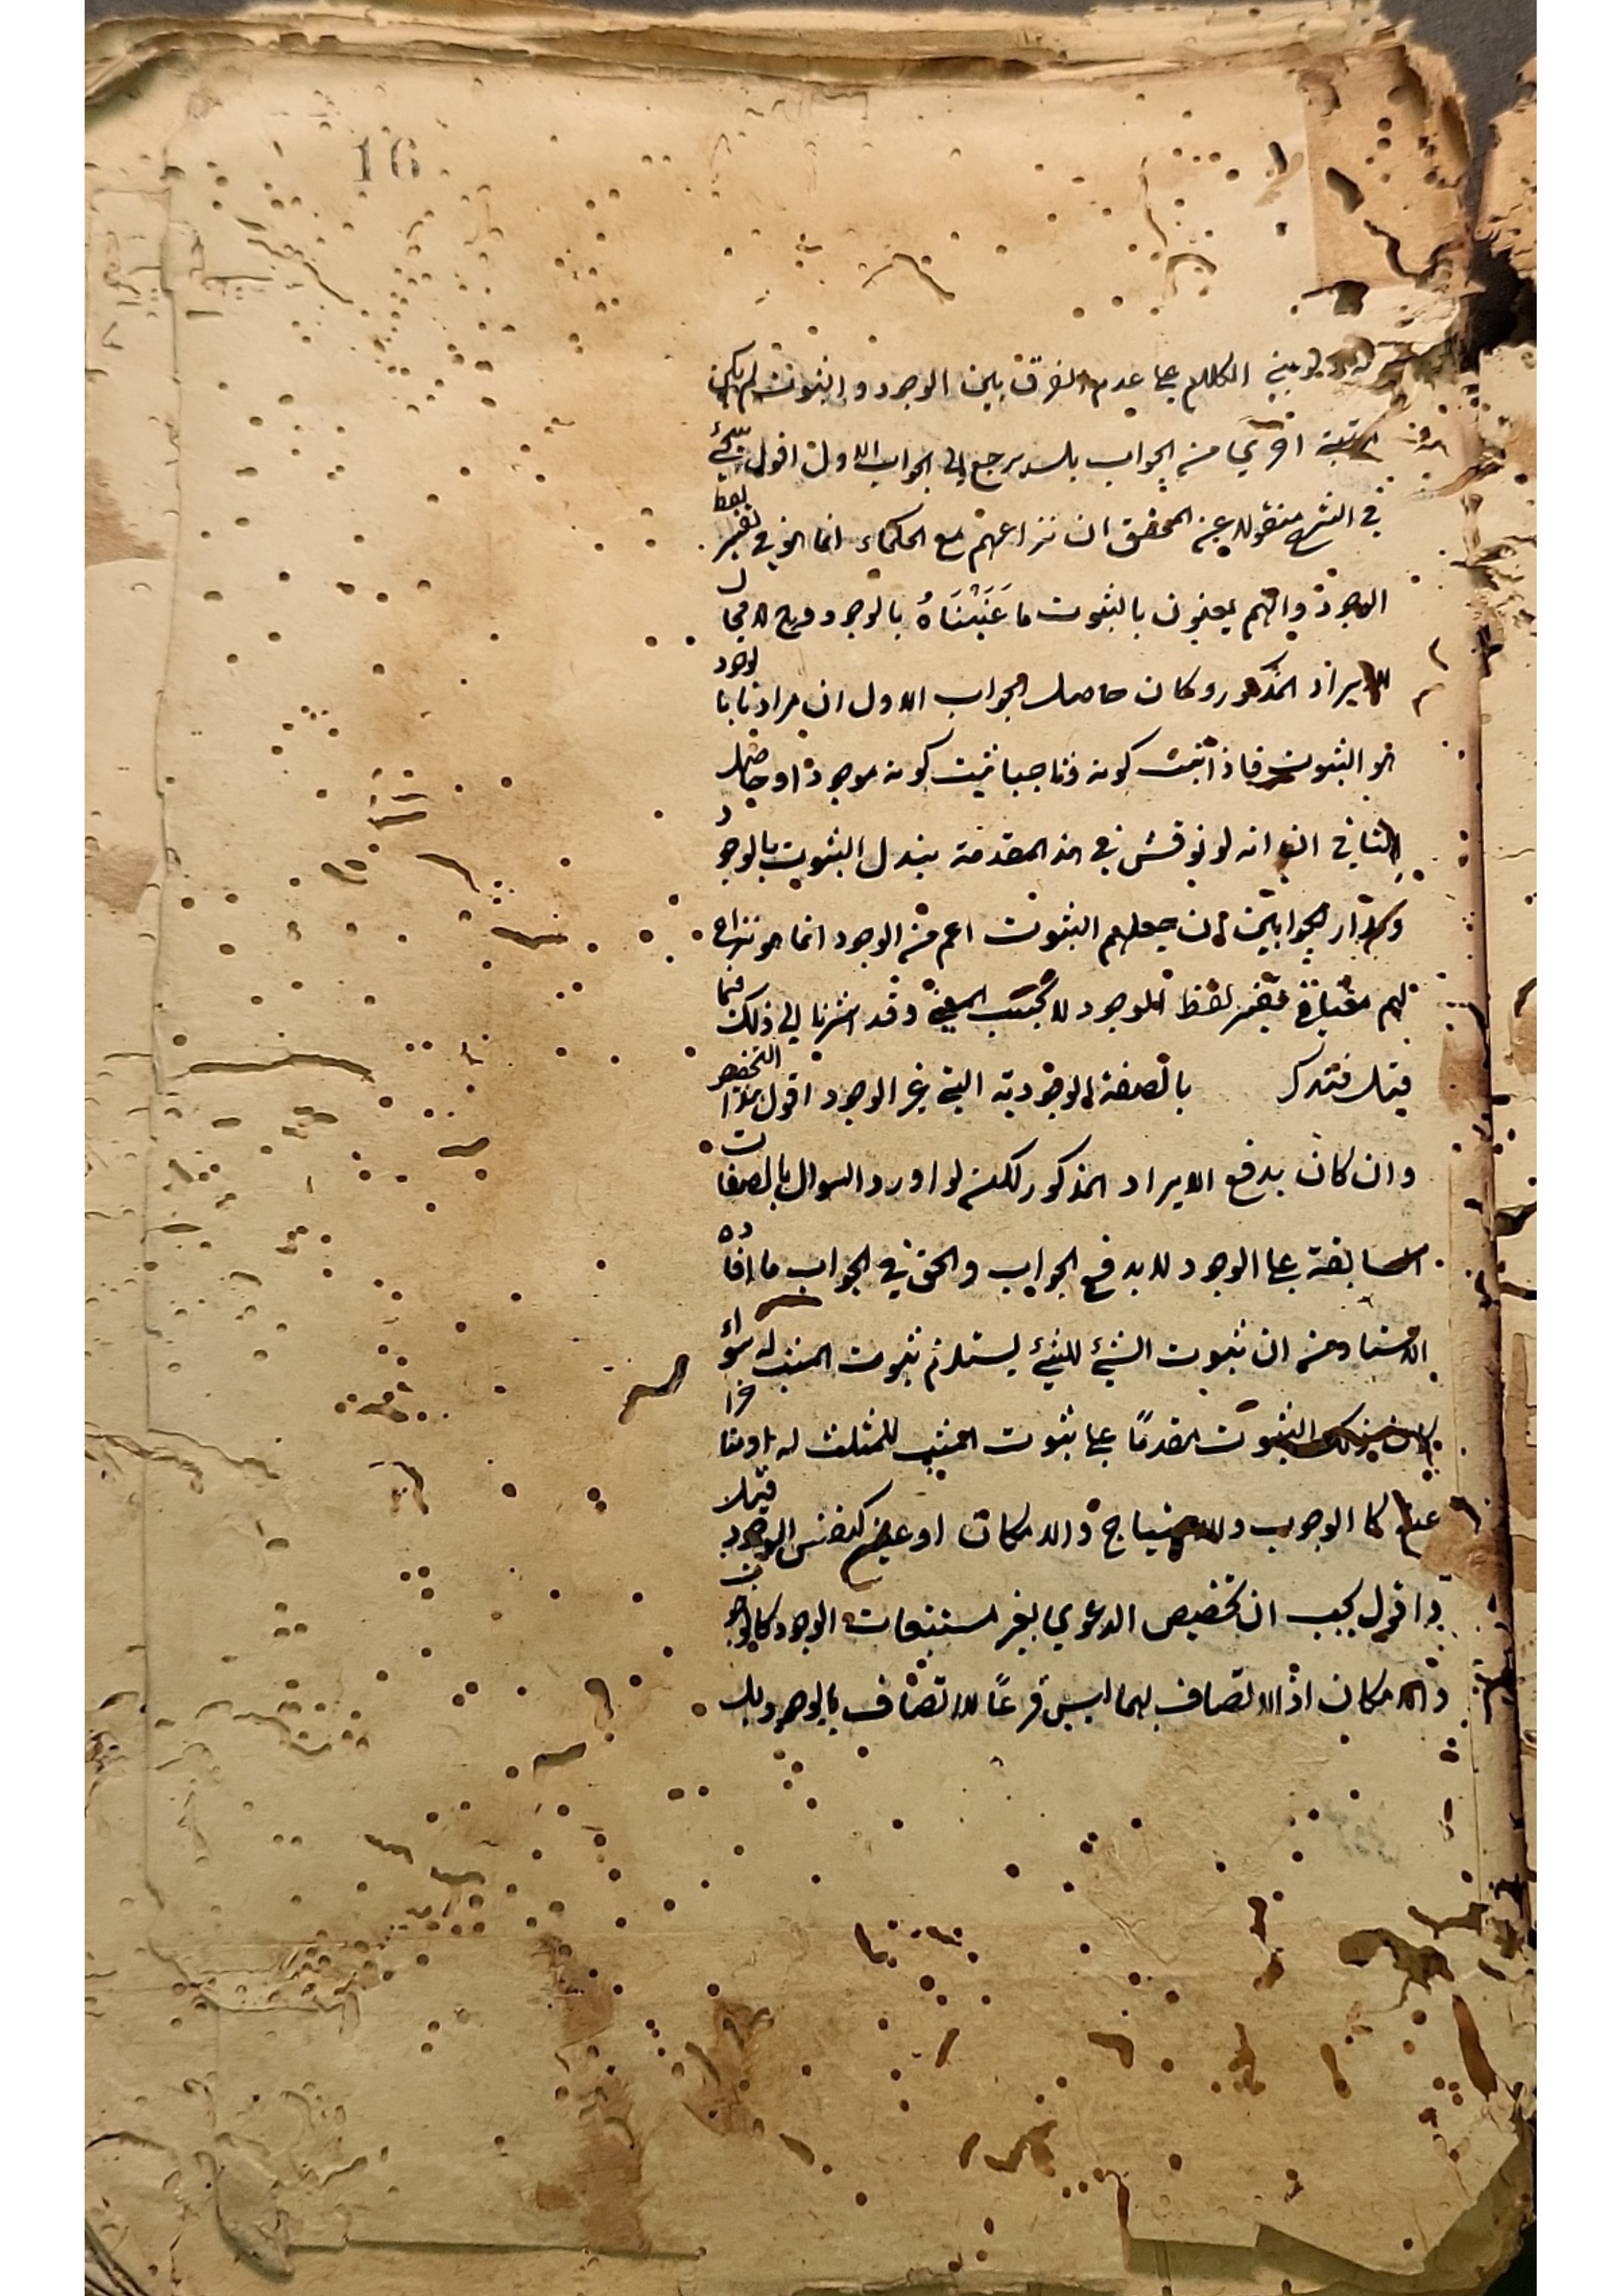 16
لو بني الكلام على عدم الفرق بين الوجود والثبوت لم يكن
مرتبة اخرى من الجواب بل يرجع الى الجواب الاول اقول سيجئ
في الشرح منقولا عن المحقق ان نزاعهم مع الحكماء انما هو في تفسير لفظ
الوجود وانهم يعنون بالثبوت ما عَنَيْنَاهُ بالوجود وح لا مجال
للايراد المذكور وكان حاصل الجواب الاول ان مرادنا بالوجود
هو الثبوت فاذا ثبت كونه ثبت كونه موجودا وحاصل
الثاني انه لو نوقش في هذه المقدمة يبدل الثبوت بالوجود
الجوابين ان جعلهم الثبوت اعم من الوجود انما هو نزاع
لهم في تفسير لفظ الموجود لا بحسب المعنى وقد اشرنا الى ذلك فيما
قبل فتذكر بالصفة الوجودية التي غير الوجود اقول هذا التخصيص
وان كان يدفع الايراد المذكور لكنه لو اورد السوال بالصفات
السابقة على الوجود لا يدفع الجواب والحق في الجواب ما افاده
الاستاد من ان ثبوت الشئ للشئ يستلزم ثبوت المثبت له سواء
كان ذلك الثبوت مقدمًا على ثبوت المثبت له او متاخرا
عنه كالوجوب والاحتياج والامكان او عينه كنفس الوجود قيل
اقول يجب ان تخصيص الدعوي بغير مستتبعات الوجود كالوجوب
والامكان اذ الاتصاف بهما ليس فرعًا للاتصاف بالوجود بل